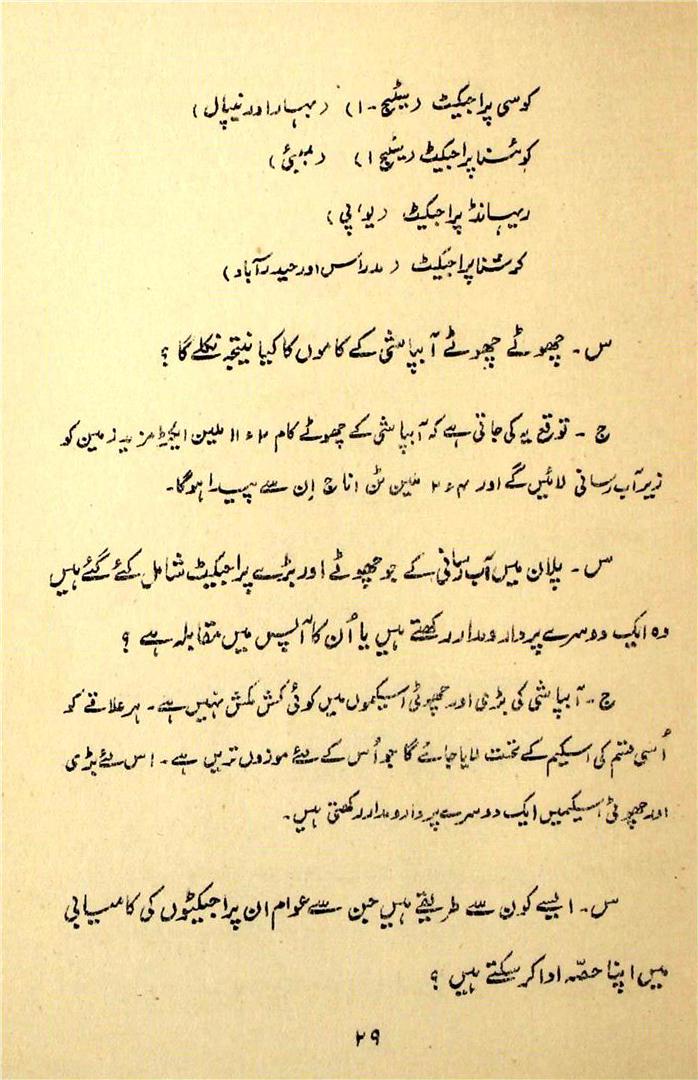 کوسی پراجیکٹ (سٹیج ۔ ۱) (بہار اور نیپال)
کوئنا پراجیکٹ (سٹیج ۱) (بمبئی)
ریہانڈ پراجیکٹ (یو، پی)
کرشنا پراجیکٹ (مدراس اور حیدرآباد)
س ۔ چھوٹے چھوٹے آبپاشی کے کاموں کا کیا نتیجہ نکلے گا ؟
ج ۔ توقع یہ کی جاتی ہے کہ آبپاشی کے چھوٹے کام ۱۱ء۲ ملین ایکڑ مزید زمین کو
زیر آب رسانی لائیں گے اور ۲ء۴ ملین ٹن اناج اِن سے پیدا ہوگا۔
س ۔ پلان میں آب رسانی کے جو چھوٹے اور بڑے پراجیکٹ شامل کئے گئے ہیں
وہ ایک دوسرے پر دارومدار رکھتے ہیں یا اُن کا آپس میں مقابلہ ہے ؟
ج ۔ آبپاشی کی بڑی اور چھوٹی اسکیموں میں کوئی کش مکش نہیں ہے۔ ہر علاقے کو
اُسی قسم کی اسکیم کے تحت لایا جائے گا جو اُس کے لئے موزوں ترین ہے۔ اس لئے بڑی
اور چھوٹی اسکیمیں ایک دوسرے پر دارومدار رکھتی ہیں۔
س ۔ ایسے کون سے طریقے ہیں جن سے عوام ان پراجیکٹوں کی کامیابی
میں اپنا حصّہ ادا کر سکتے ہیں ؟
۲۹